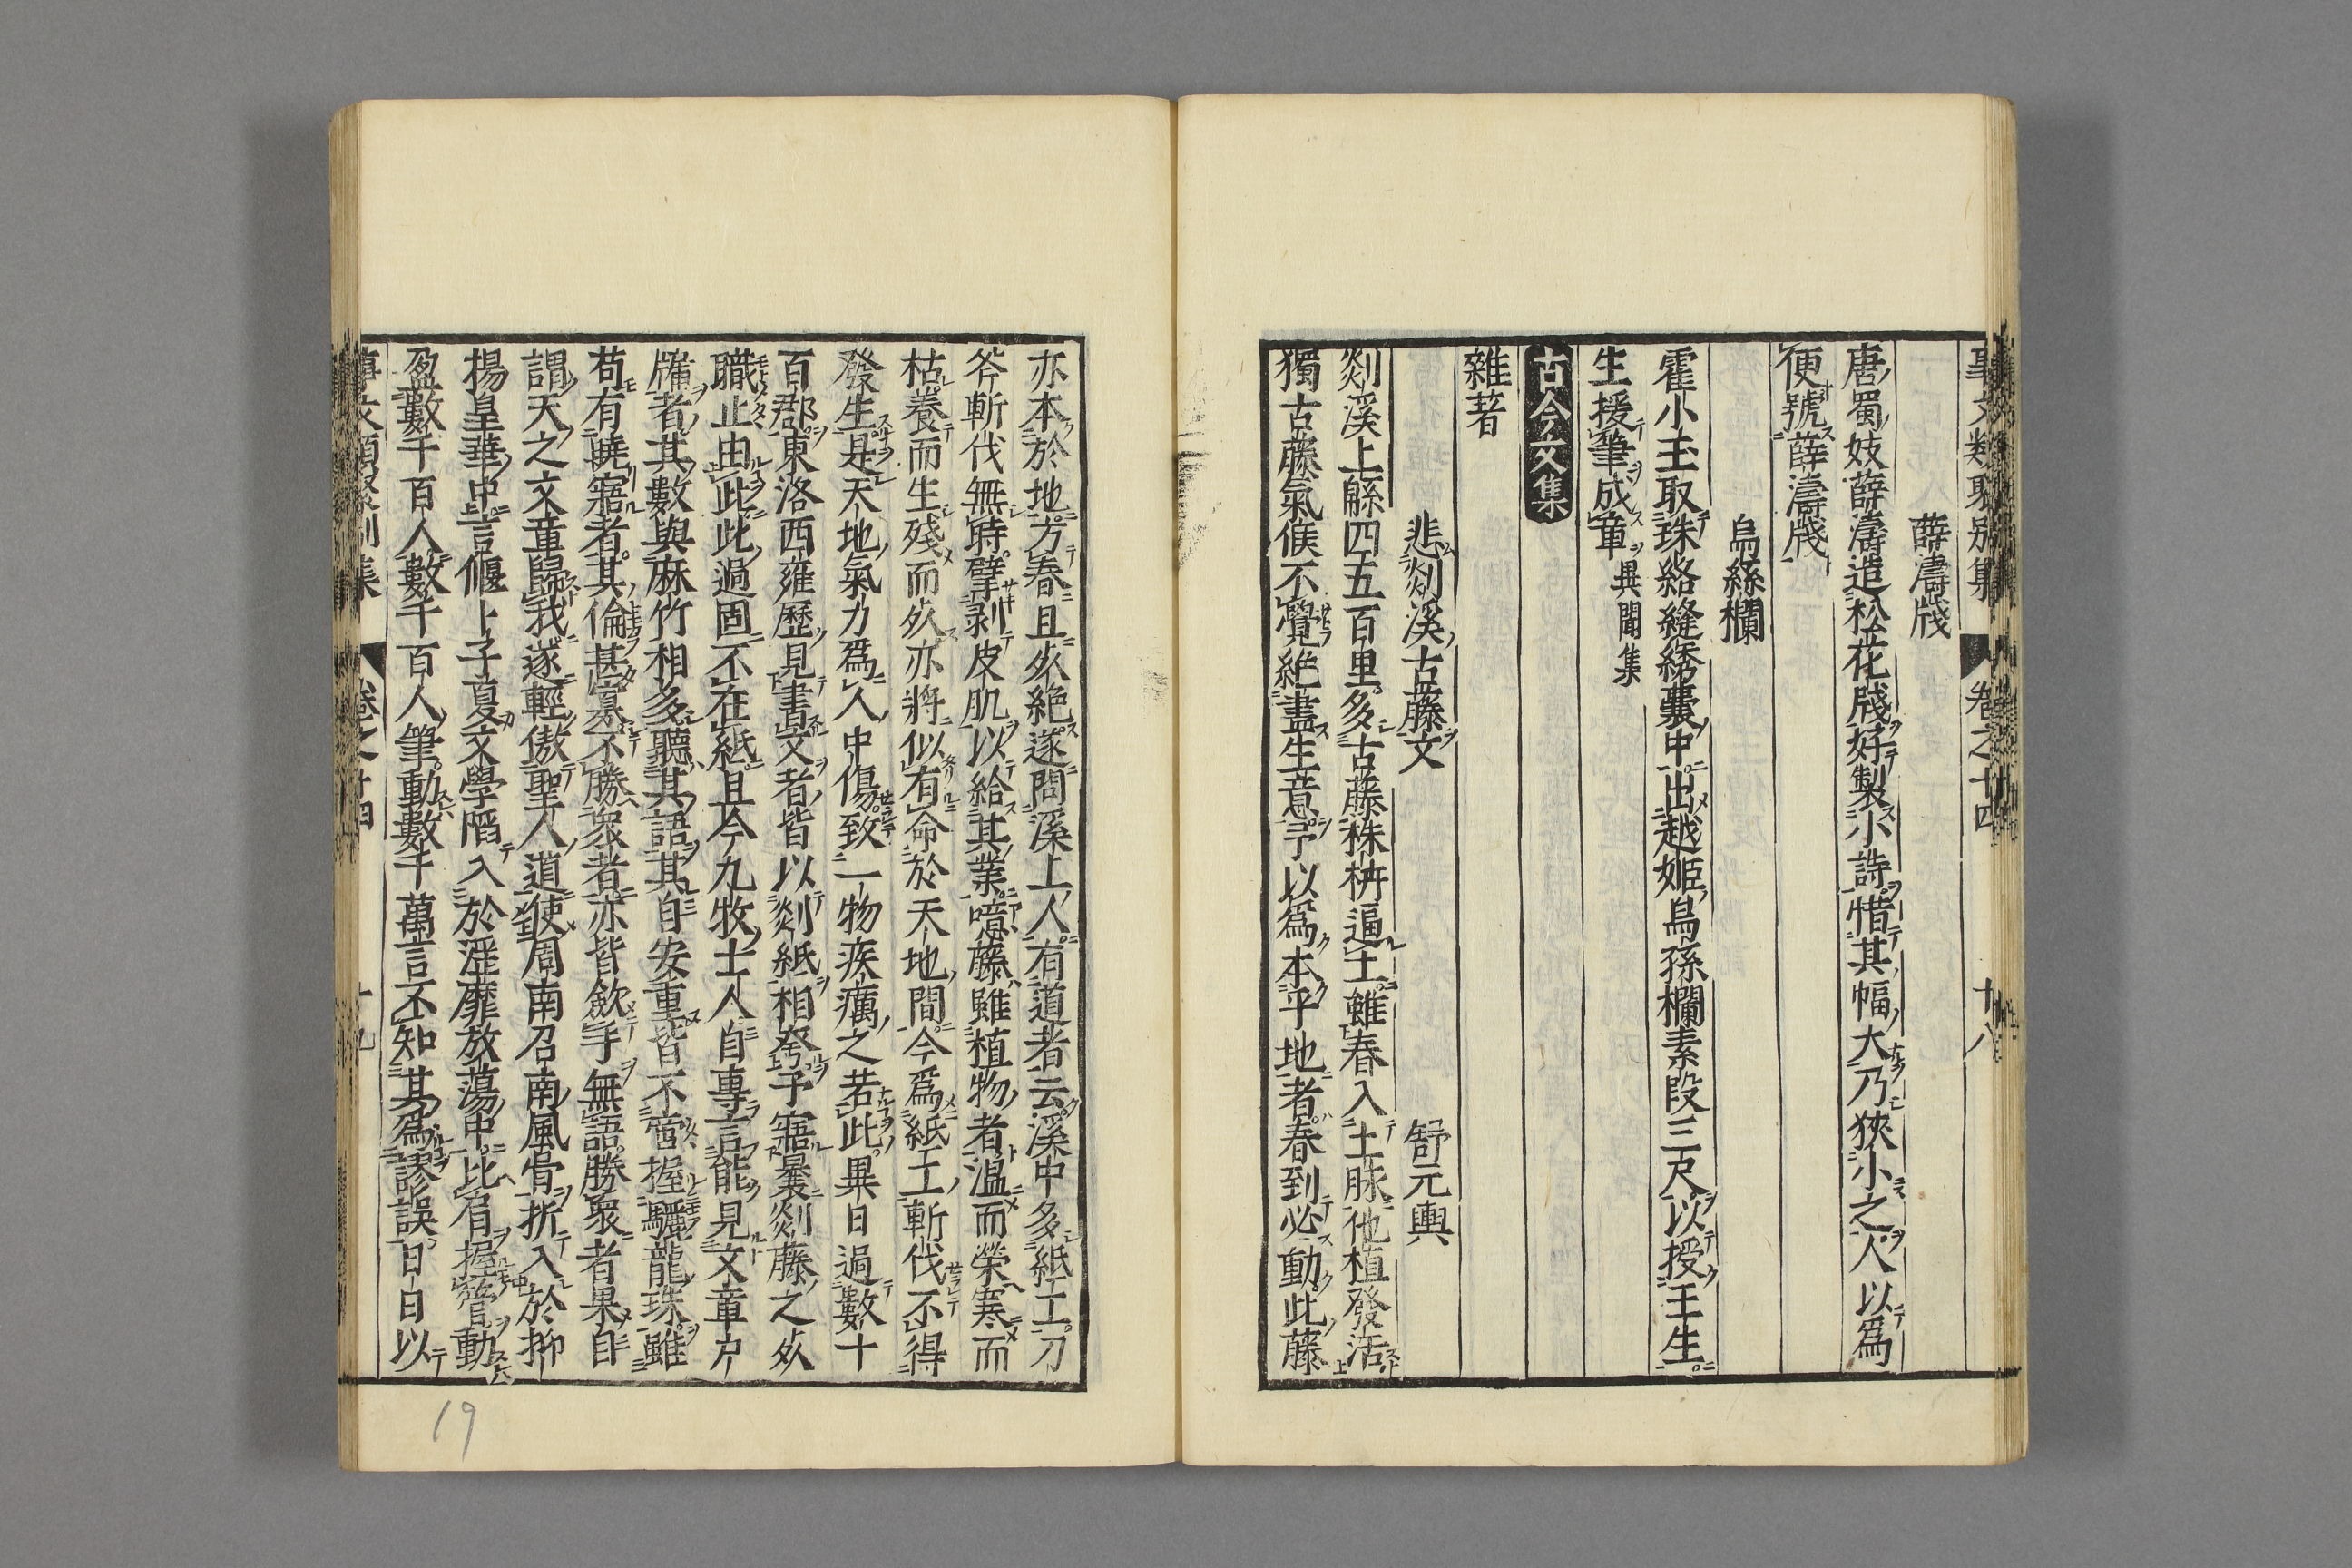 事文類聚別集　卷之十四　十八
薛濤牋
唐蜀妓薛濤造松花牋好製小詩惜其幅大乃狹小之人以爲
便號薛濤牋
烏絲欄
霍小玉取珠絡縫綉囊中出越姬烏孫欄素段三尺以授王生
生援筆成章異聞集
古今文集
雜著
悲剡溪古藤文　舒元輿
剡溪上緜四五百里多古藤株枿逼土雖春入土脉他植發活
獨古藤氣候不覺絕盡生意予以爲本乎地者春到必動此藤
亦本於地方春且𣦸絕遂問溪上人有道者云溪中多紙工刀
斧斬伐無時擘剥皮肌以給其業噫藤雖植物者溫而榮寒而
枯養而生殘而𣦸亦將似有命於天地間今爲紙工斬伐不得
發生是天地氣力爲人中傷致一物疾癘之若此異日過數十
百郡東洛西雍歷見書文者皆以剡紙相夸予寤曩剡藤之𣦸
職止由此此過固不在紙且今九牧士人自專言能見文章戶
牖者其數與麻竹相多聽其語其自安重皆不啻握驪龍珠雖
苟有曉寤者其倫甚寡不勝衆者亦皆歛手無語勝衆者果自
謂天之文章歸我遂輕傲聖人道使周南召南風骨折入於抑
揚皇華中言偃卜子夏文學陷入於淫靡放蕩中比肩握管動
盈數千百人數千百人筆動數千萬言不知其爲謬誤日日以
事文類聚別集　卷之十四　十九
19